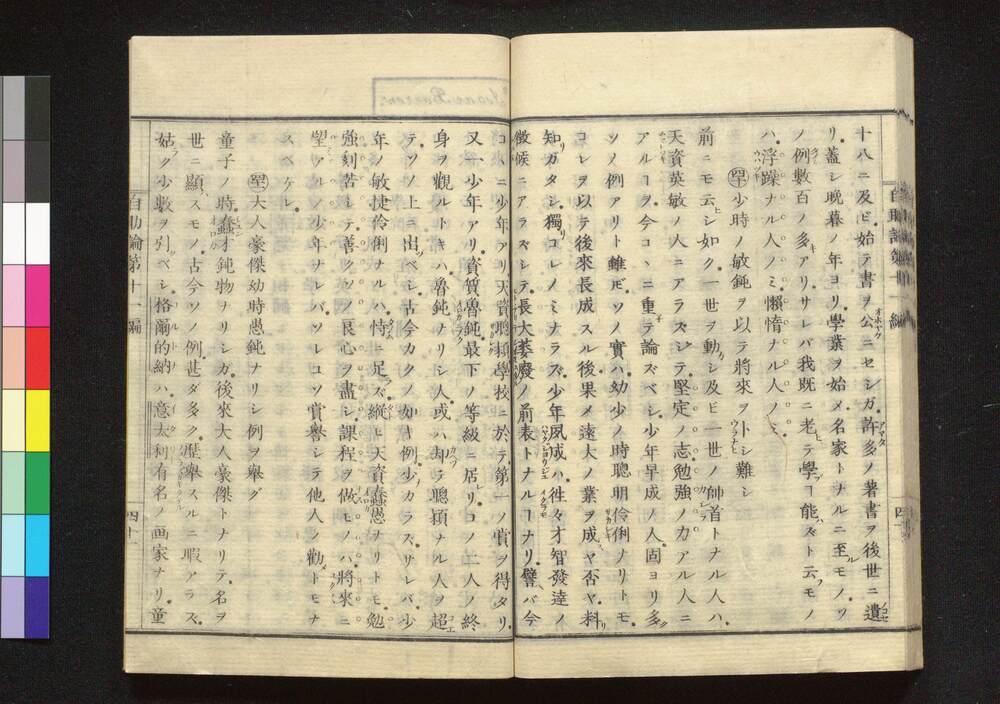 十八ニ及ビ始テ書ヲ公ニセシガ許多ノ著書ヲ後世ニ遺
リ蓋シ晩暮ノ年ヨリ學業ヲ始メ名家トナルニ至モノソ
ノ例數百ノ多キアリサレバ我既ニ老テ學ブヿ能ハズト云フモノ
ハ浮躁ナル人ノミ懶惰ナル人ノミ
少時ノ敏鈍ヲ以テ將來ヲト難シ
前ニモ云シ如ク一世ヲ動シ及ビ一世ノ師首トナル人ハ
天資英敏ノ人ニアラズシテ堅定ノ志勉強ノ力アル人ニ
アルヿヲ今コヽニ重テ論ズベシ少年早成ノ人固ヨリ多
ソノ例アリト雖𪜈ソノ實ハ幼少ノ時聰明伶俐ナリトモ
コレヲ以テ後來長成スル後果メ遠大ノ業ヲ成ヤ否ヤ料リ
知リガタシ獨リコレノミナラズ少年夙成ハ徃々才智發達ノ
徴候ニアラズシテ長大萎廢ノ前表トナルヿナリ譬バ今
コヽニ少年アリ天資聰穎學校ニ於テ第一ノ賞ヲ得タリ
又一少年アリ資質魯鈍最下ノ等級ニ居リコノ二人ノ終
身ヲ觀ルトキハ魯鈍ナリシ人或ハ却テ聰穎ナル人ヲ超
テソノ上ニ出ツベシ古今カクノ如キ例少カラズサレバ少
年ノ敏捷伶俐ナルハ恃ニ足ラズ縱ヒ天資蠢愚ナリトモ勉
強刻苦シテ善クソノ良心ヲ盡シ課程ヲ做モノハ將來ニ
望アルノ少年ナレバソレコソ賞譽シテ他人ノ勸メトモナ
スベケレ
大人豪傑幼時愚鈍ナリシ例ヲ舉グ
童子ノ時蠢才鈍物ナリシガ後來大人豪傑トナリテ名ヲ
世ニ顯スモノ古今ソノ例甚ダ多ク歷舉スルニ暇アラズ
姑ク少數ヲ引ベシ恪爾的納ハ意太利有名ノ画家ナリ童
自助論第十一編
四十一